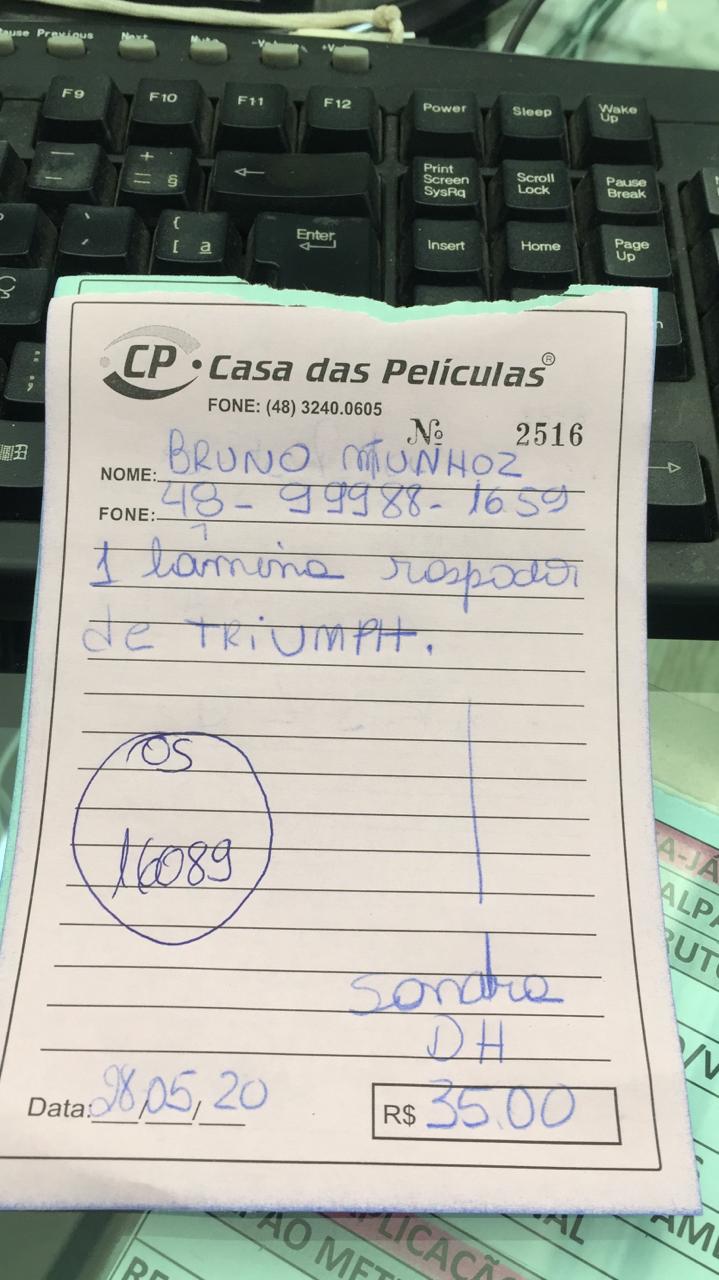 Pause Previous Next Mute -Volume +Volume
F9 F10 F11 F12 Power Sleep Wake Up
+ = §
Print Screen SysRq Scroll Lock Pause Break
{ [ a Enter Insert Home Page Up
Ç
CP Casa das Películas®
FONE: (48) 3240.0605
Nº 2516
NOME: BRUNO MUNHOZ
FONE: 48-99988-1659
1 lâmina raspador
de TRIUMPH.
OS
16089
Sandra
DH
Data: 28/05/20
R$ 35.00
A-JÁ
ALPA
RUTO
O/V
S
NAL
AME
APLICAÇÃ
AO MET
RE